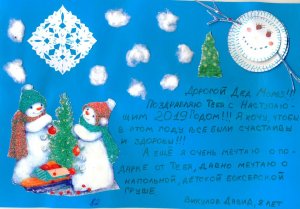 Дорогой Дед Мороз!!!
Поздравляю Тебя с Наступаю-
щим 2019 Годом!!! Я хочу, чтобы
в этом году все были счастливы
и здоровы!!!
А ещё я очень мечтаю о по-
дарке от Тебя, давно мечтаю о
напольной, детской боксёрской
груше.
Давид, 8 лет